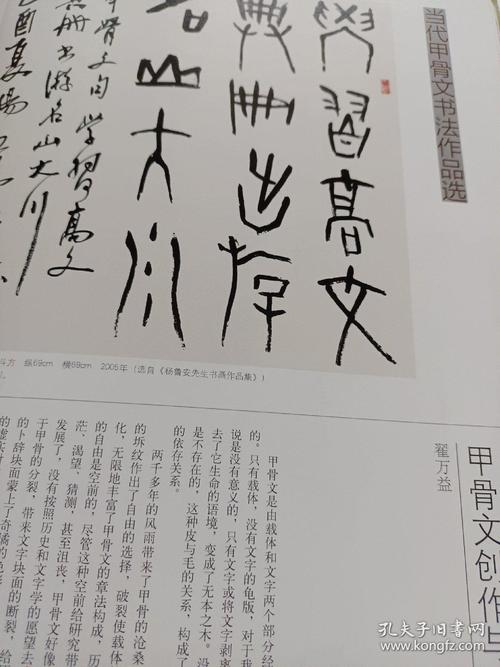 当代甲骨文书法作品选
学習高文
典冊出游
名山大川
甲骨文句 学習高文
典册出游名山大川
乙酉夏杨
斗方 纵69cm 横69cm 2005年（选自《杨鲁安先生书画作品集》）
甲骨文创作
翟万益
甲骨文是由载体和文字两个部分经
的。只有载体，没有文字的龟版，对于我
说是没有意义的，只有文字或将文字剥离
去了它生命的语境，变成了无本之木。没
是不存在的，这种皮与毛的关系，构成了
的依存关系。
两千多年的风雨带来了甲骨的沧桑
的坼纹作出了自由的选择，破裂使载体
化，无限地丰富了甲骨文的章法构成，历
的自由是空前的，尽管这种空前给研究带
茫、渴望、猜测，甚至沮丧，甲骨文好像
发展了，没有按照历史和文字学的愿望去
于甲骨的分裂，带来文字块面的断裂，给
的卜辞块面蒙上了奇谲的色彩
的虚实对
孔夫子旧书网